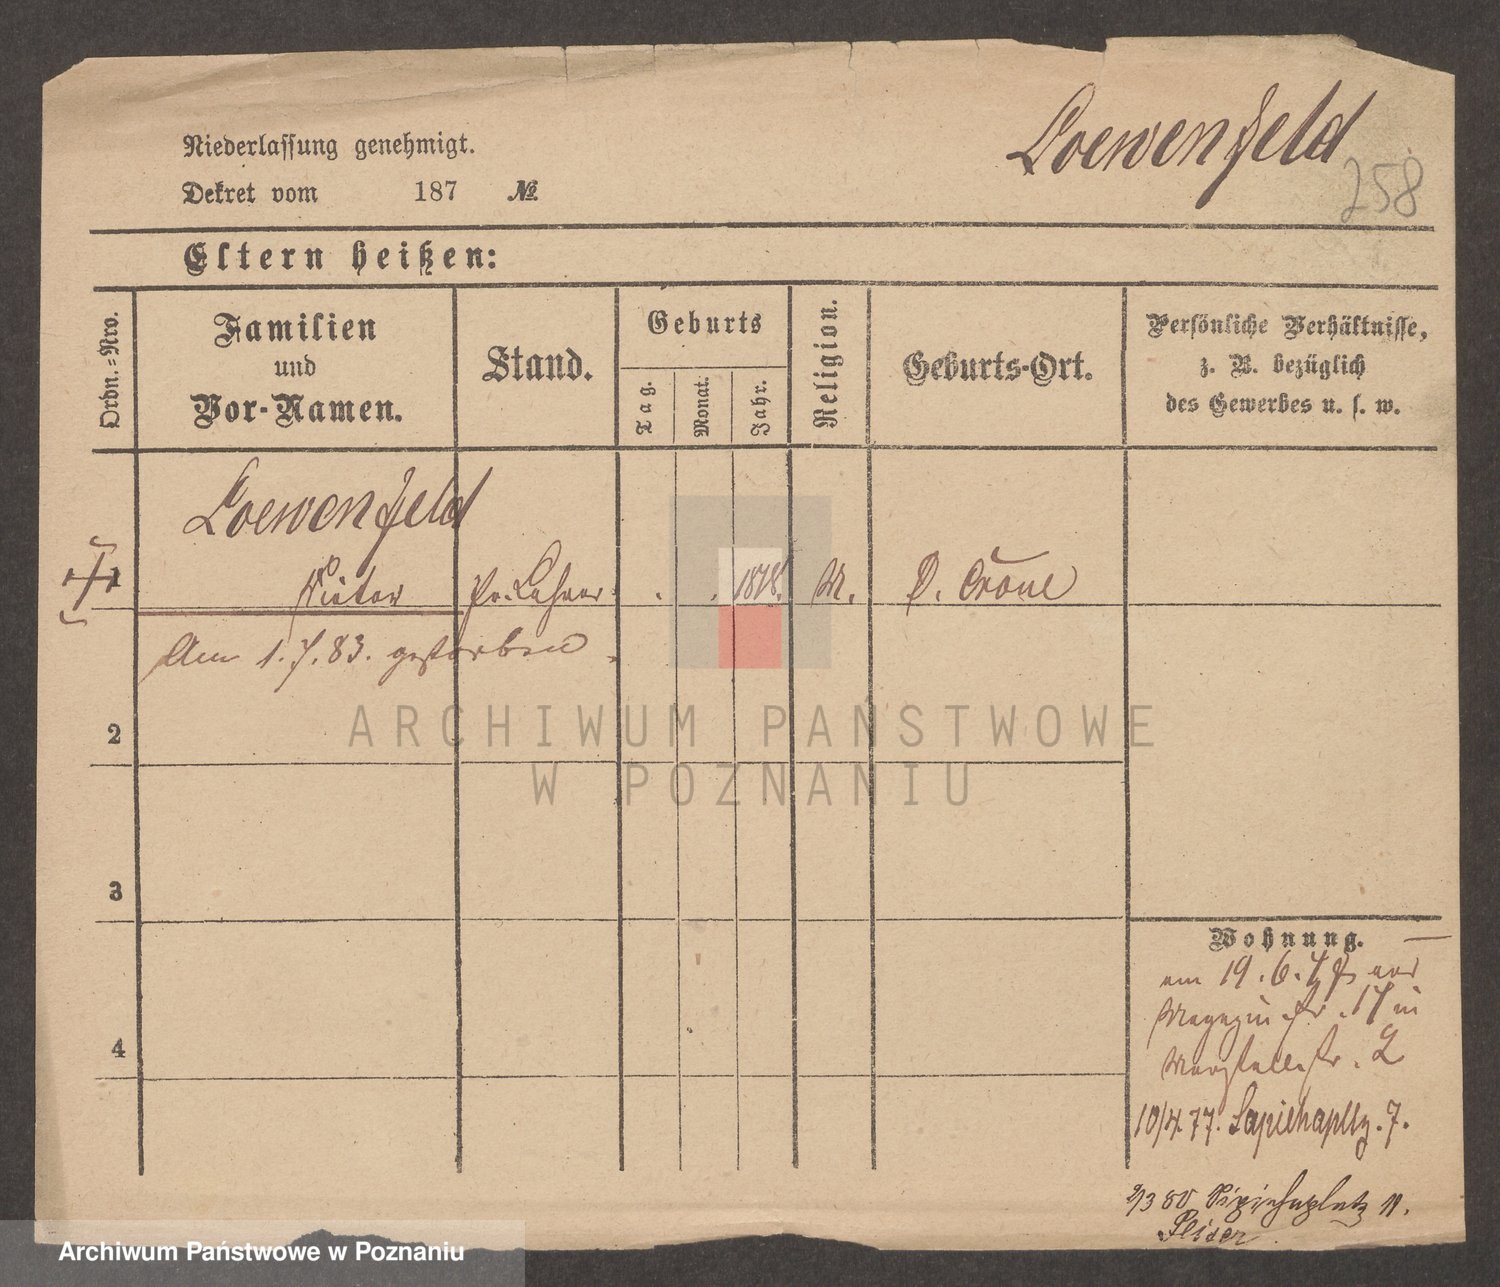 Niederlassung genehmigt.
Dekret vom 187 №
Loewenfeld
258
Eltern heißen:
Ordn.=Nro.
Familien
und
Vor-Namen.
Stand.
Geburts
Tag.
Monat.
Jahr.
Religion.
Geburts-Ort.
Persönliche Verhältnisse,
z. B. bezüglich
des Gewerbes u. s. w.
Loewenfeld
1
Pr. Lehrer
M.
D. Crone
Am 1. 7. 83. gestorben.
2
3
4
Wohnung.
am 19. 6.
Magazin str. 17 in
Marstallstr. 2
10/4. 77. Sapiehapltz. 7.
2/3 80 Sapiehaplatz 11.
ARCHIWUM PAŃSTWOWE
W POZNANIU
Archiwum Państwowe w Poznaniu